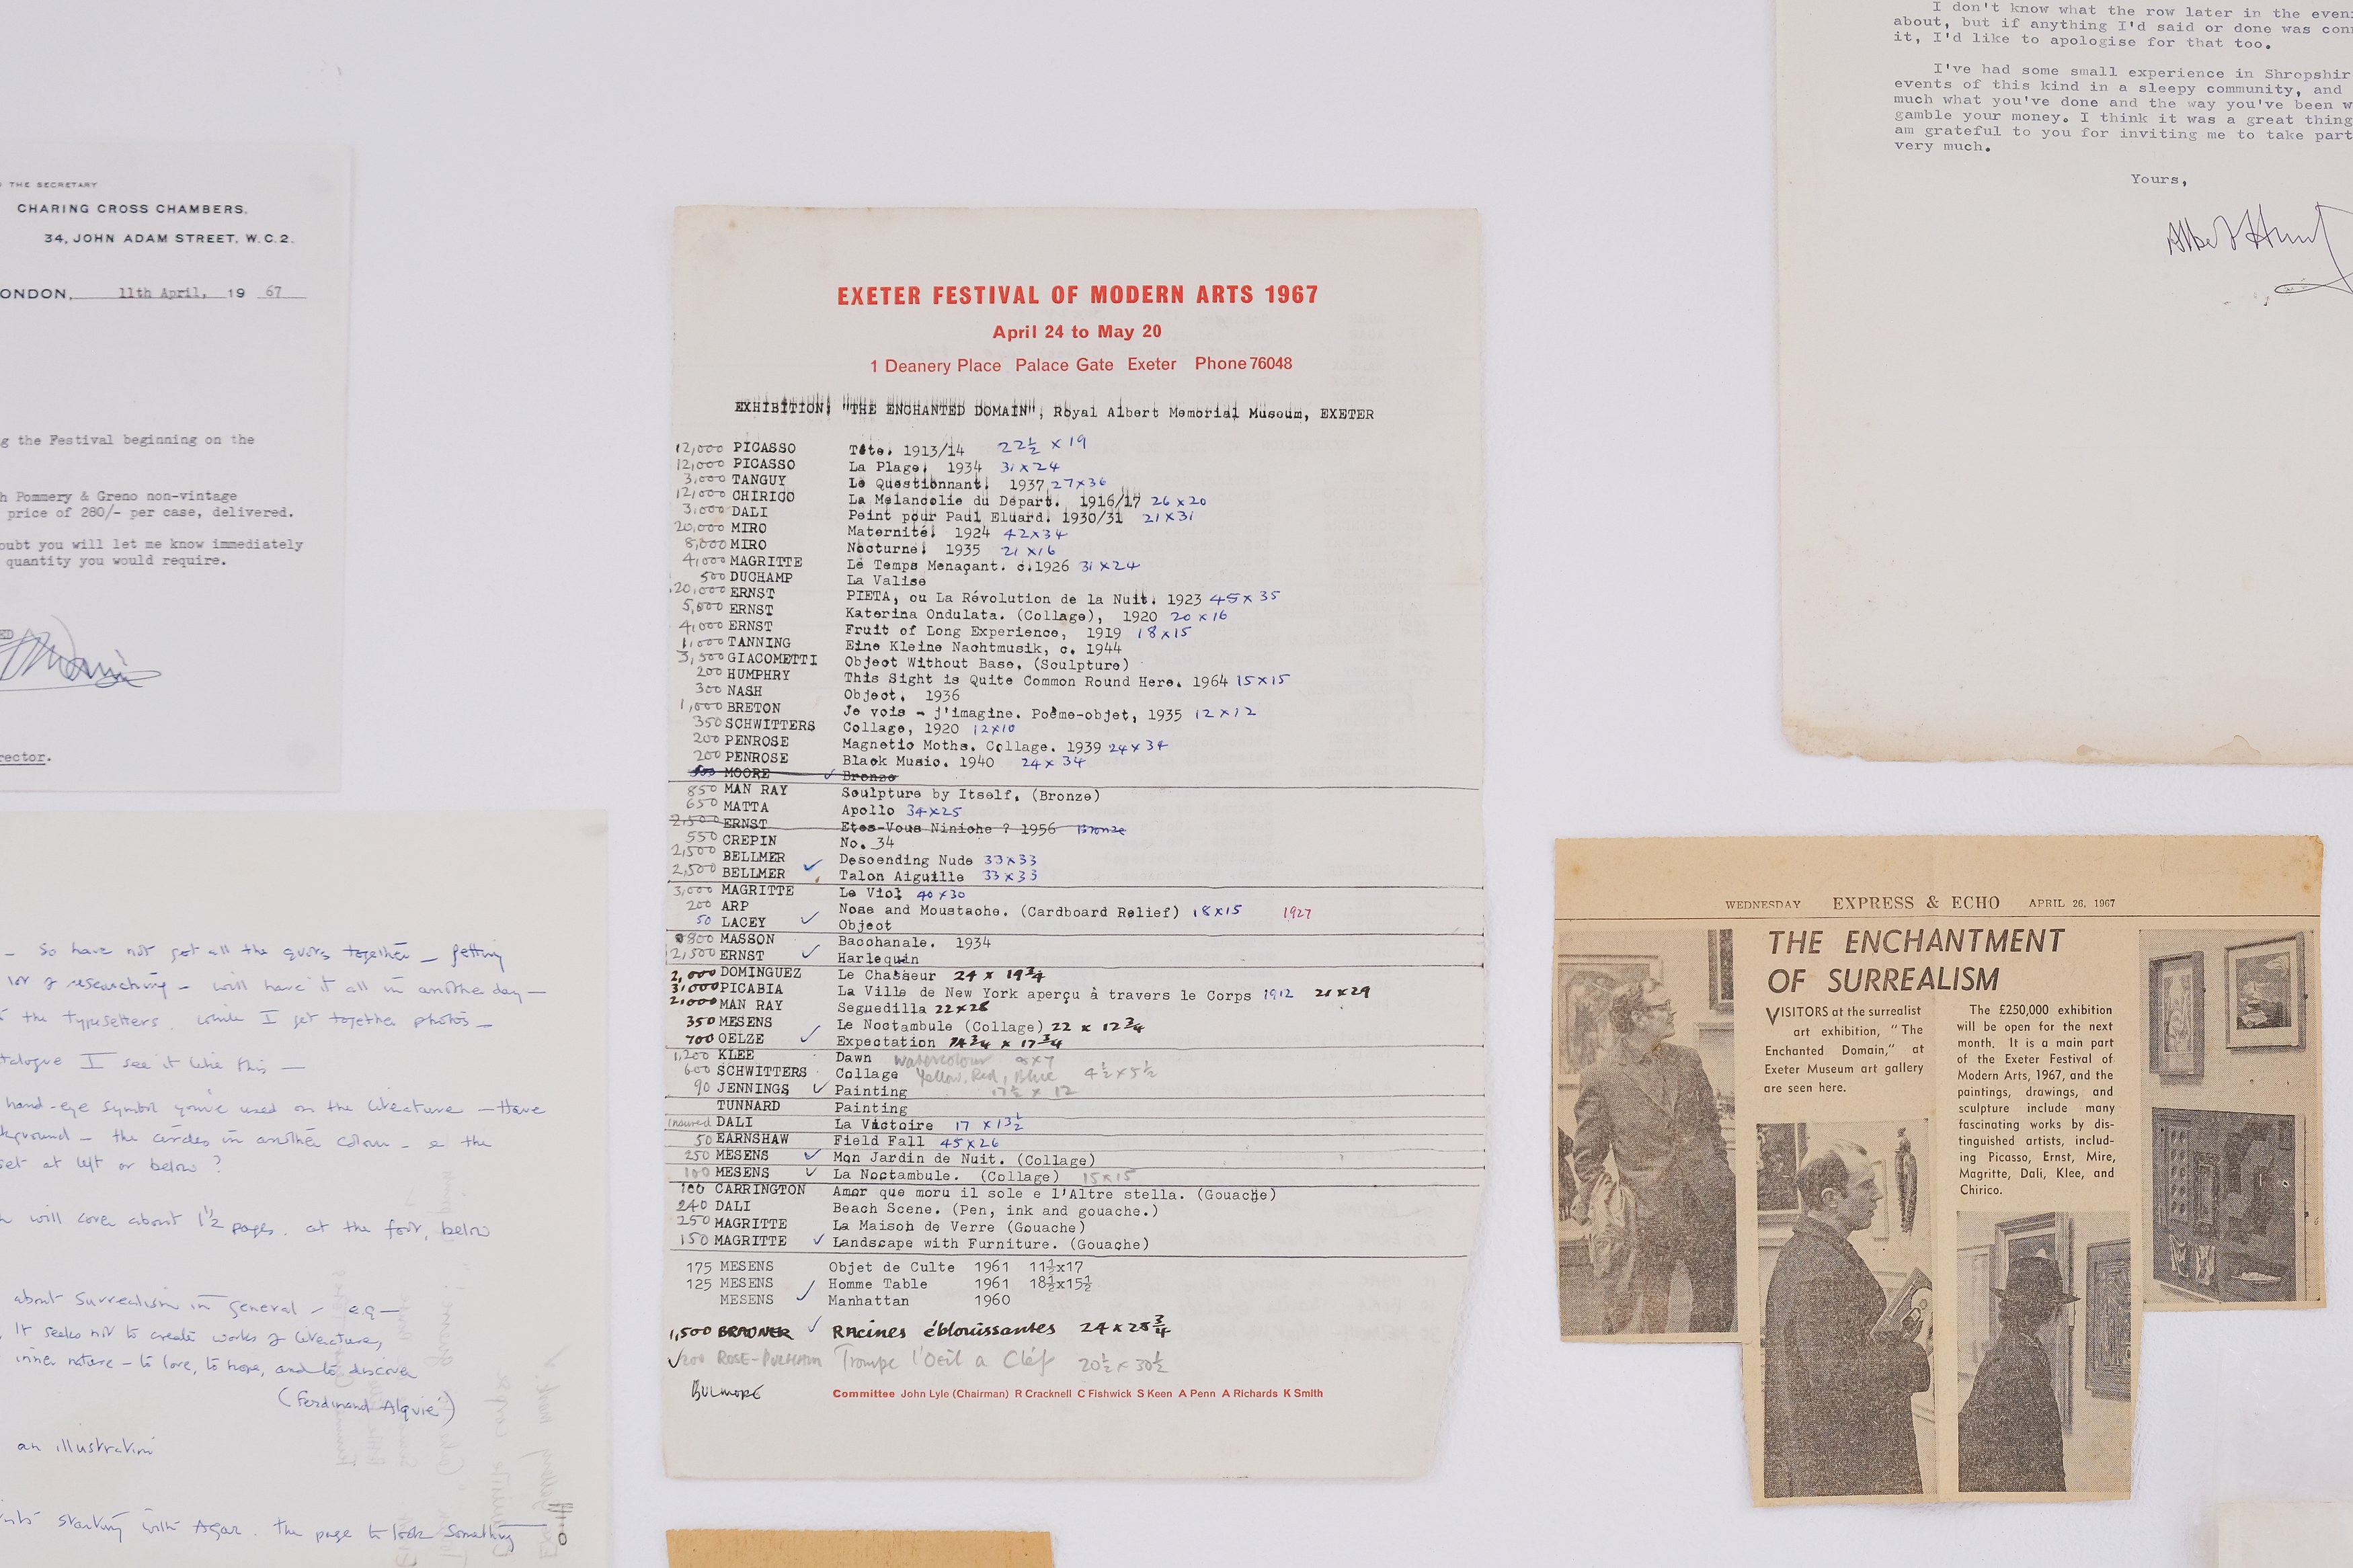 THE SECRETARY
CHARING CROSS CHAMBERS,
34, JOHN ADAM STREET, W.C.2.
ONDON, 11th April, 19 67
g the Festival beginning on the
h Pommery & Greno non-vintage
price of 280/- per case, delivered.
oubt you will let me know immediately
quantity you would require.
rector.
- So have not got all the quotes together - getting
lot of researching - will have it all in another day -
the typesetters. while I get together photos -
talogue I see it like this -
hand-eye symbol you've used on the literature - Have
kground - the circles in another colour - & the
set at left or below ?
will cover about 1½ pages. at the foot, below
about Surrealism in general - e.g -
It seeks not to create works of literature,
inner nature - to love, to hope, and to discover
(Ferdinand Alquié)
an illustration
starting with Agar. The page to look something
EXETER FESTIVAL OF MODERN ARTS 1967
April 24 to May 20
1 Deanery Place Palace Gate Exeter Phone 76048
EXHIBITION: "THE ENCHANTED DOMAIN", Royal Albert Memorial Museum, EXETER
12,000 PICASSO Tête. 1913/14 22½ x 19
12,000 PICASSO La Plage. 1934 31 x 24
3,000 TANGUY Le Questionnant. 1937 27x36
12,000 CHIRICO La Mélancolie du Départ. 1916/17 26 x 20
3,000 DALI Peint pour Paul Eluard. 1930/31 21x31
20,000 MIRO Maternité. 1924 42x34
8,000 MIRO Nocturne. 1935 21 x16
4,000 MAGRITTE Le Temps Menaçant. c.1926 31 x24
500 DUCHAMP La Valise
20,000 ERNST PIETA, ou La Révolution de la Nuit. 1923 45x 35
5,000 ERNST Katerina Ondulata. (Collage), 1920 20 x 16
4,000 ERNST Fruit of Long Experience, 1919 18x15
1,000 TANNING Eine Kleine Nachtmusik, c. 1944
3,500 GIACOMETTI Object Without Base. (Sculpture)
200 HUMPHRY This Sight is Quite Common Round Here. 1964 15x15
300 NASH Object. 1936
1,000 BRETON Je vois - j'imagine. Poême-objet, 1935 12x12
350 SCHWITTERS Collage, 1920 12x10
200 PENROSE Magnetic Moths. Collage. 1939 24x34
200 PENROSE Black Music. 1940 24x 34
MOORE ✓ Bronze
850 MAN RAY Sculpture by Itself, (Bronze)
650 MATTA Apollo 34x25
2,500 ERNST Etes-Vous Niniche ? 1956 Bronze
550 CREPIN No. 34
2,500 BELLMER Descending Nude 33x33
2,500 BELLMER ✓ Talon Aiguille 33x33
3,000 MAGRITTE Le Viol 40x30
200 ARP Nose and Moustache. (Cardboard Relief) 18x15 1927
50 LACEY ✓ Object
800 MASSON Bacchanale. 1934
2,500 ERNST ✓ Harlequin
2,000 DOMINGUEZ Le Chasseur 24 x 19¾
3,000 PICABIA La Ville de New York aperçu à travers le Corps 1912 21x29
2,000 MAN RAY Seguedilla 22x28
350 MESENS Le Noctambule (Collage) 22 x 12¾
700 OELZE ✓ Expectation x 17¾
1,200 KLEE Dawn Watercolour 9x7
600 SCHWITTERS Collage Yellow, Red, Blue 4½x5½
90 JENNINGS ✓ Painting 17½ x 12
TUNNARD Painting
Insured DALI La Victoire 17 x13½
50 EARNSHAW Field Fall 45x26
250 MESENS ✓ Mon Jardin de Nuit. (Collage)
100 MESENS ✓ La Noctambule. (Collage) 15x15
180 CARRINGTON Amor que moru il sole e l'Altre stella. (Gouache)
240 DALI Beach Scene. (Pen, ink and gouache.)
250 MAGRITTE La Maison de Verre (Gouache)
150 MAGRITTE ✓ Landscape with Furniture. (Gouache)
175 MESENS Objet de Culte 1961 11½x17
125 MESENS Homme Table 1961 18½x15½
MESENS ✓ Manhattan 1960
1,500 BRAUNER ✓ Racines éblouissantes 24 x 28¾
✓ 200 ROSE-PULHAM Trompe l'Oeil a Cléf 20½ x 30½
BULMORE
Committee John Lyle (Chairman) R Cracknell C Fishwick S Keen A Penn A Richards K Smith
I don't know what the row later in the even
about, but if anything I'd said or done was con
it, I'd like to apologise for that too.
I've had some small experience in Shropshir
events of this kind in a sleepy community, and
much what you've done and the way you've been w
gamble your money. I think it was a great thing
am grateful to you for inviting me to take part
very much.
Yours,
Albert Hunt
WEDNESDAY EXPRESS & ECHO APRIL 26, 1967
THE ENCHANTMENT
OF SURREALISM
VISITORS at the surrealist
art exhibition, "The
Enchanted Domain," at
Exeter Museum art gallery
are seen here.
The £250,000 exhibition
will be open for the next
month. It is a main part
of the Exeter Festival of
Modern Arts, 1967, and the
paintings, drawings, and
sculpture include many
fascinating works by dis-
tinguished artists, includ-
ing Picasso, Ernst, Mire,
Magritte, Dali, Klee, and
Chirico.